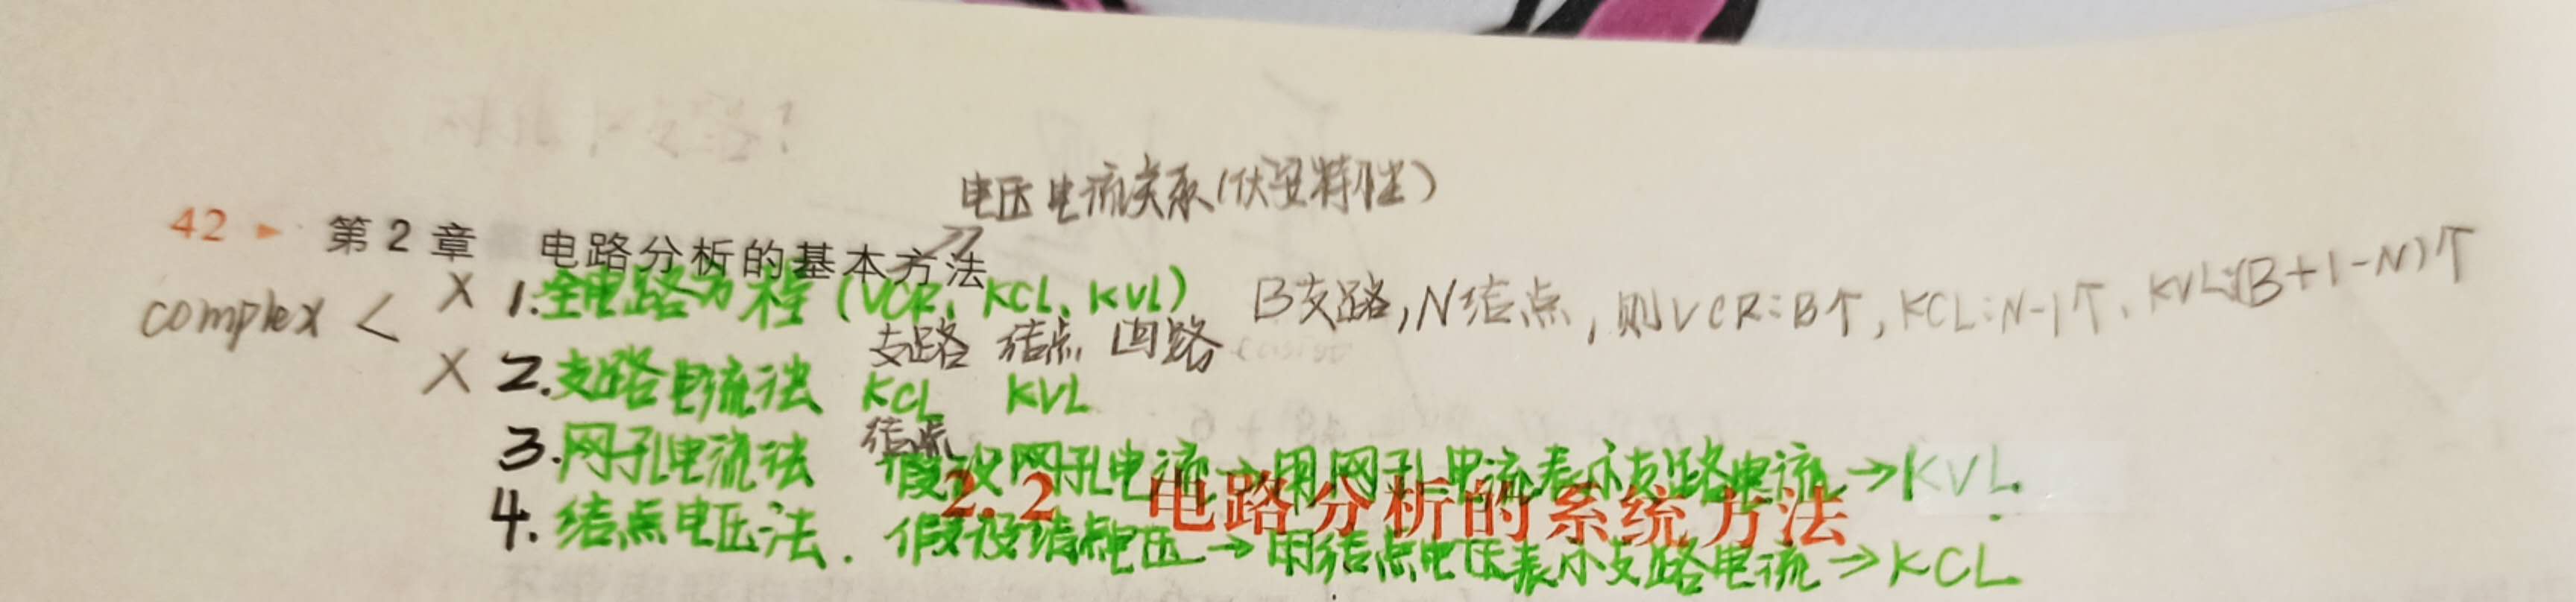 电压电流关系(伏安特性)
42 ▸ 第2章 电路分析的基本方法
complex < × 1.全电路方程(VCR、KCL、KVL) B支路,N结点,则VCR:B个,KCL:N-1个、KVL:(B+1-N)个
支路 结点 回路
× 2.支路电流法 KCL KVL
结点
3.网孔电流法 假设网孔电流→用网孔电流表示支路电流→KVL.
2.2 电路分析的系统方法
4.结点电压法. 假设结点电压→用结点电压表示支路电流→KCL